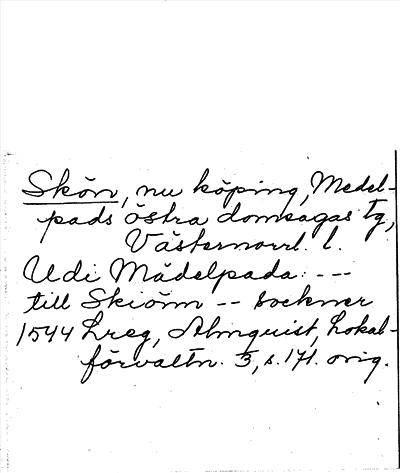 Skön, nu köping, Medel-
pads östra domsagas tg,
Västernorrl. l.
Udi Mädelpada: ---
till Skiömn -- sockner
1544 Lreg, Almquist, Lokal-
förvaltn. 3, s. 171. orig.